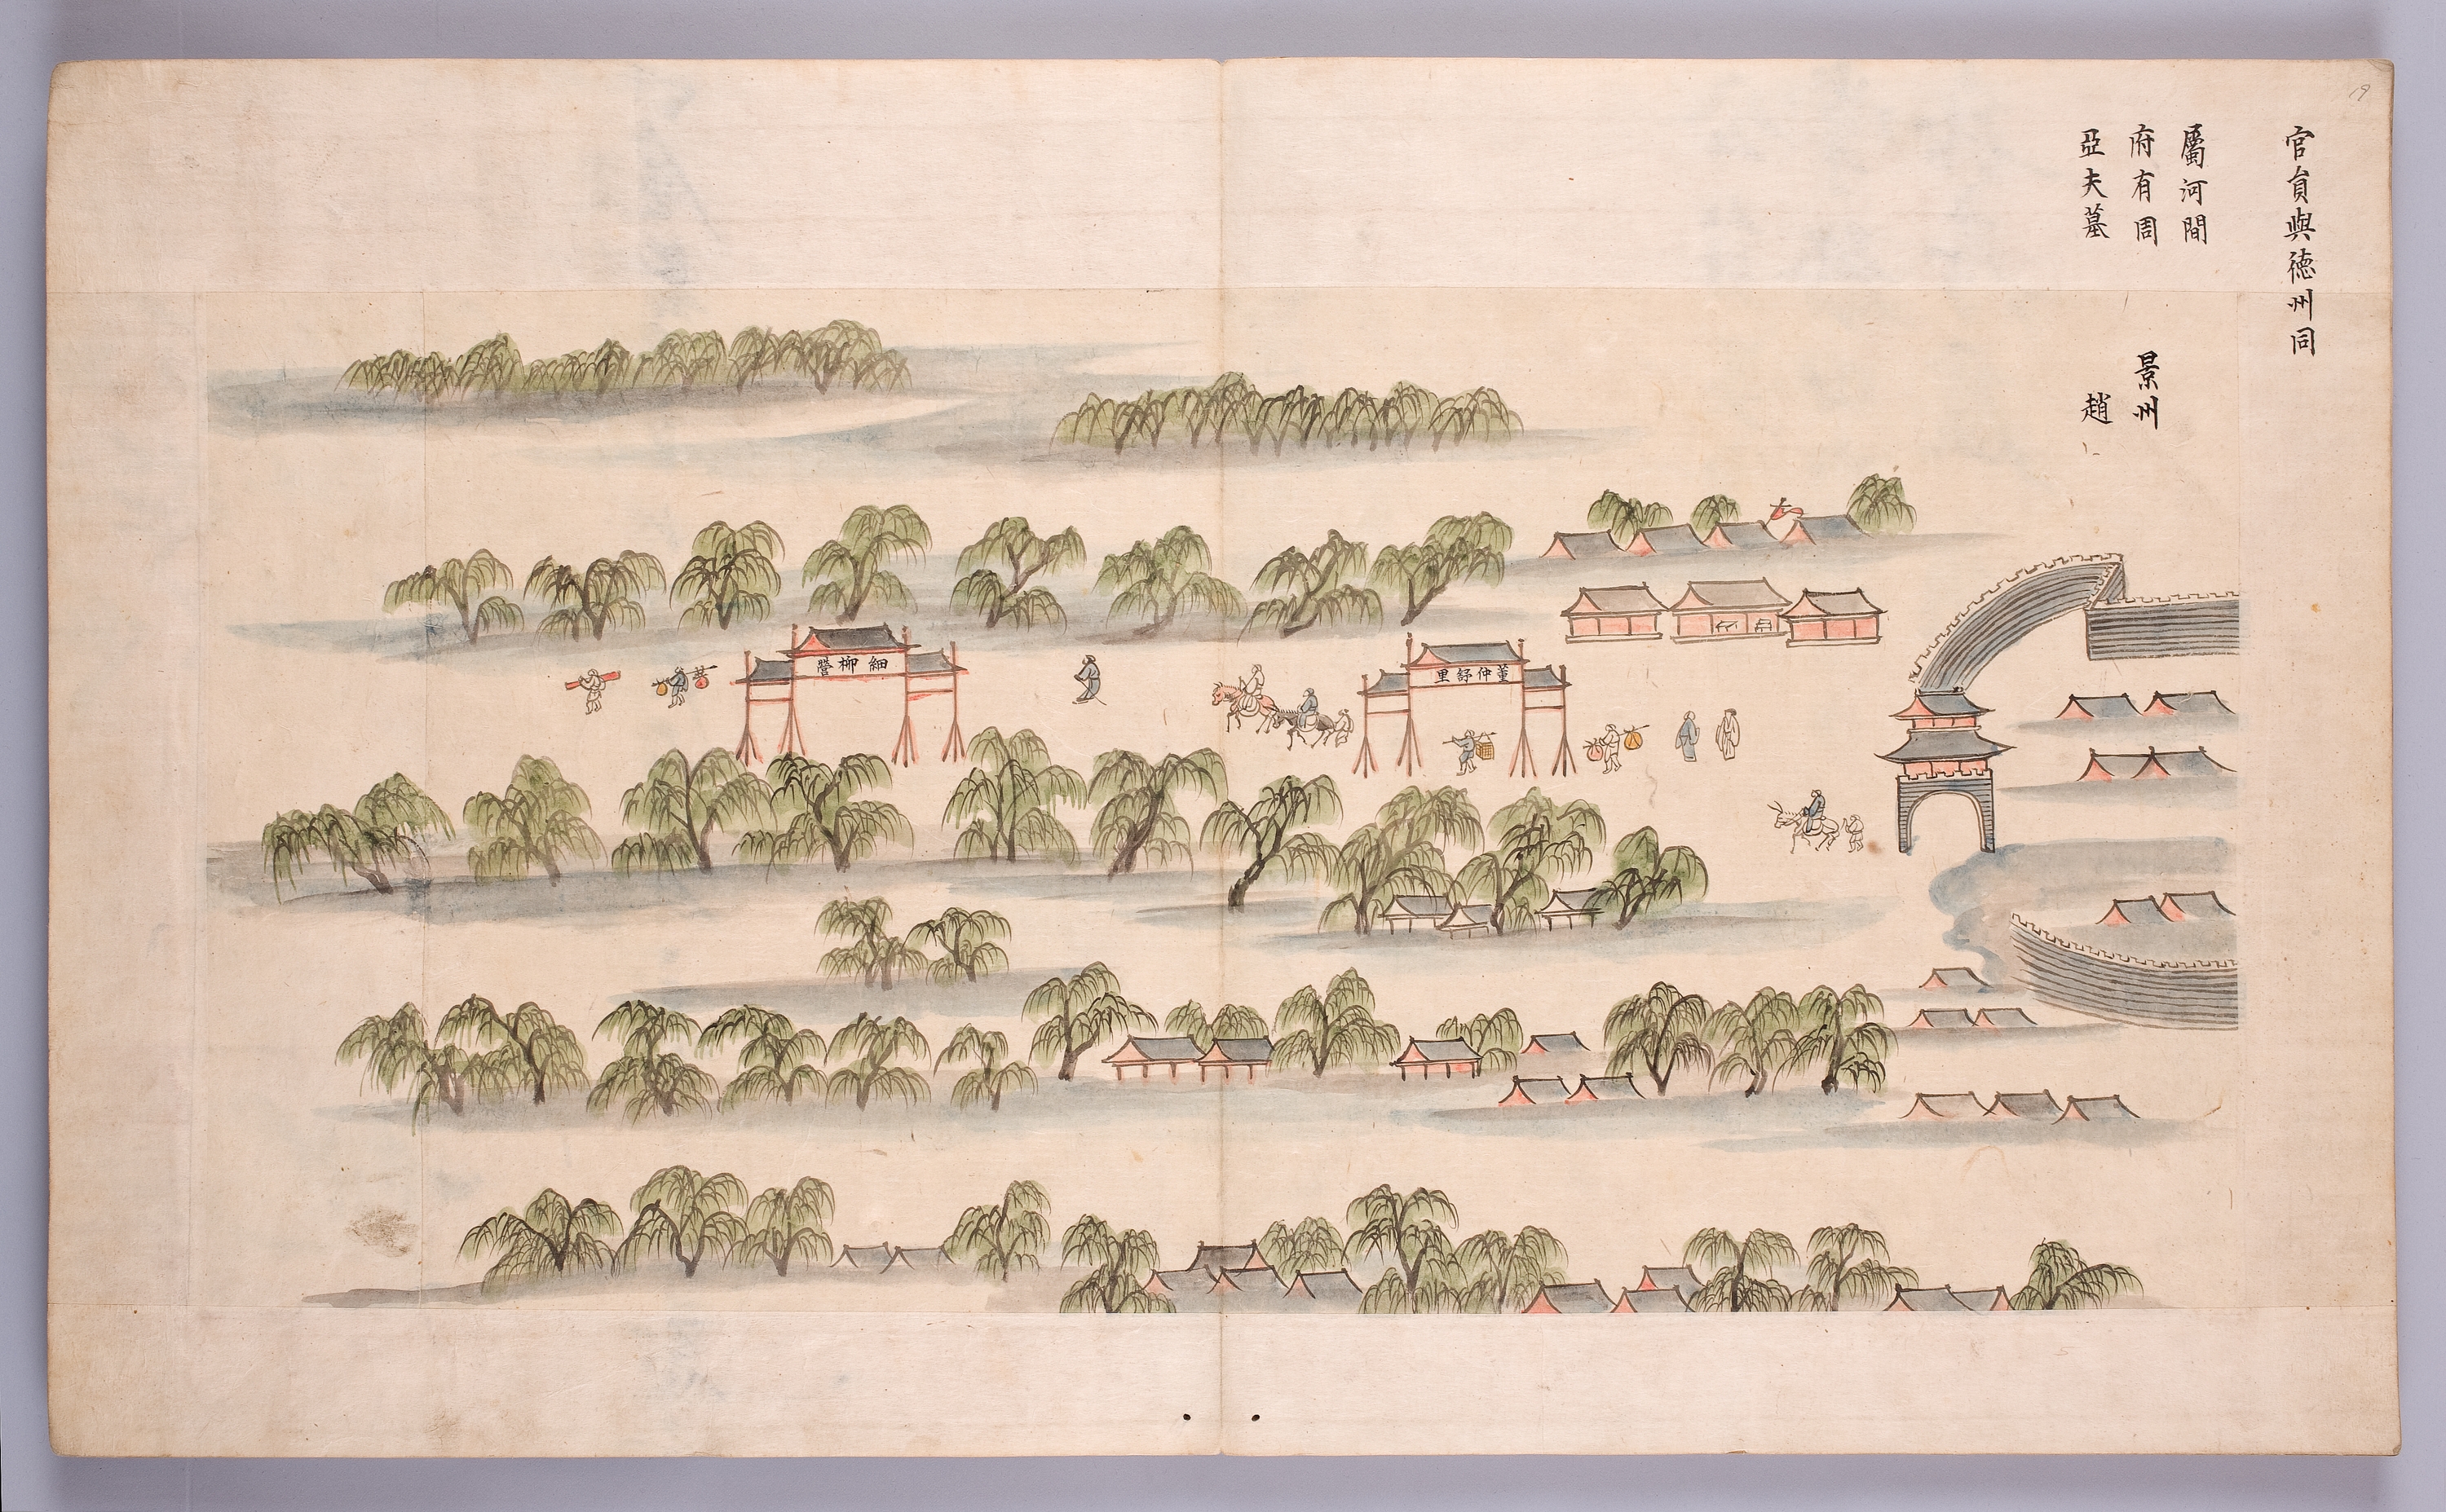 官負與徳州同
屬河間
府有周
亞夫墓
景州
趙
董仲舒里
細柳營